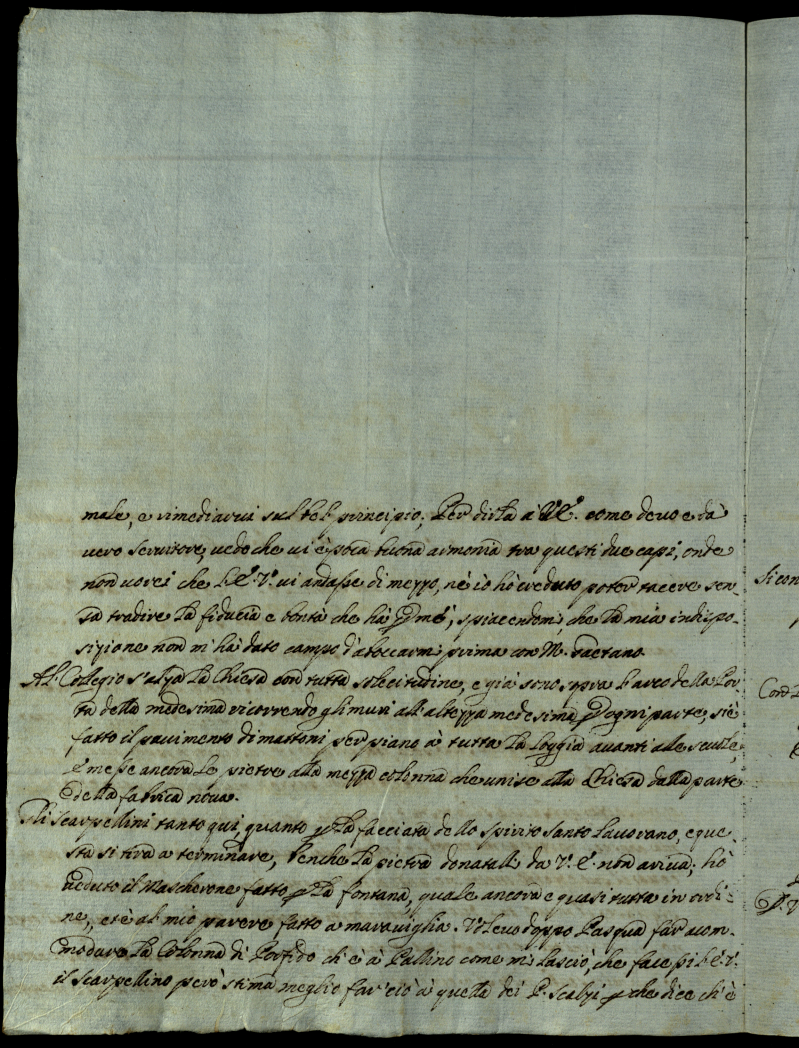 male, e rimediarvi sul bel principio; Per dirla à V.E. come devo e da
vero servitore, vedo che vi è poca buona armonia tra questi due capi, onde
non vorei che l'E.V. vi andasse di mezzo, nè io hò creduto poter tacere sen-
za tradire la fiducia e bontà che hà per me, spiacendomi che la mia indispo-
sizione non m'hà dato campo d'aboccarmi prima con M. Gaetano.
Al Collegio s'alza la Chiesa con tutta solecitudine, e già sono sopra l'arco della Por-
ta della medesima ricorrendo gli muri all'altezza medesima per ogni parte, si è
fatto il pavimento di mattoni per piano à tutta la Loggia avanti alle scuole,
e messe ancora le pietre alla mezza colonna che unisce alla Chiesa dalla parte
della fabrica nova.
Gli scarpellini tanto qui, quanto per la facciata dello Spirito Santo lavorano, e que-
sta si tira a terminare, benche la pietra donatali da V.E. non ariva; hò
veduto il Mascherone fatto per la fontana, quale ancora è quasi tutta in ordi-
ne, et è al mio parere fatto a maraviglia. Volevo doppo Pasqua far acom-
modare la Colonna di Porfido ch'è à Pallino come mi lasciò, che facessi l'E.V.
il scarpellino però stima meglio far ciò à quella dei P. Scalzi perche dice ch'è
Si con
Con